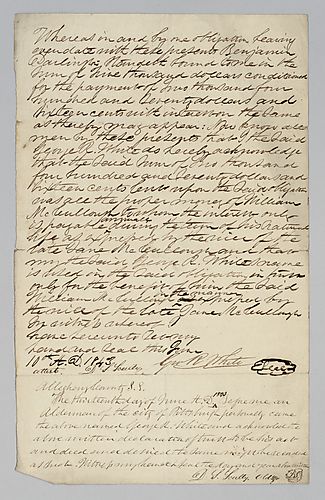 Whereas in and by one obligation bearing
even date with these presents Benjamin
Darlington stands bound to me in the
sum of Nine thousand dollars conditioned
for the payment of Two thousand four
hundred and seventy dollars and
sixteen cents with interest on the same
as thereby may appear: Now know all
men by these presents that I the said
George R. White do hereby acknowledge
that the said sum of Two thousand
four hundred and seventy dollars and
sixteen cents lent upon the said obligation
was all the proper money of William
McCullough to whom the interest only
is payable annually during the term of his natural
life as property by the will of the
late James McCullough and that
my the said George R. White name
is used in the said obligation in trust
only for the benefit of him the said
William McCullough in the manner
the will of the late James McCullough
In witness whereof I
have hereunto set my
hand and seal this June
10th A.D. 1843
attest
Geo R White
Seal
Allegheny County S.S.
The thirteenth day of June A.D. 1843 before me an
Alderman of the city of Pittsburgh personally came
the above named George R. White and acknowledged the
above written declaration of trust to be his act
and deed and desired the same might be recorded
as such. Witness my hand and seal the day and year aforesaid